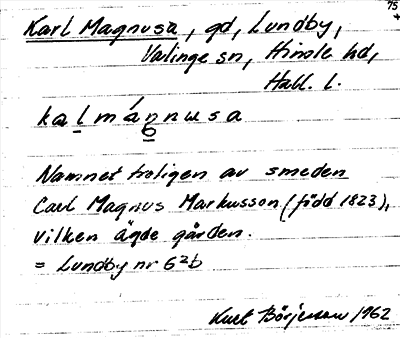 75
Karl Magnusa, gd, Lundby,
Valinge sn, Himle hd,
Hall. l.
kalmánnusa
6
Namnet troligen av smeden
Carl Magnus Markusson (född 1823),
vilken ägde gården.
= Lundby nr 6²b
Kurt Börjesson 1962